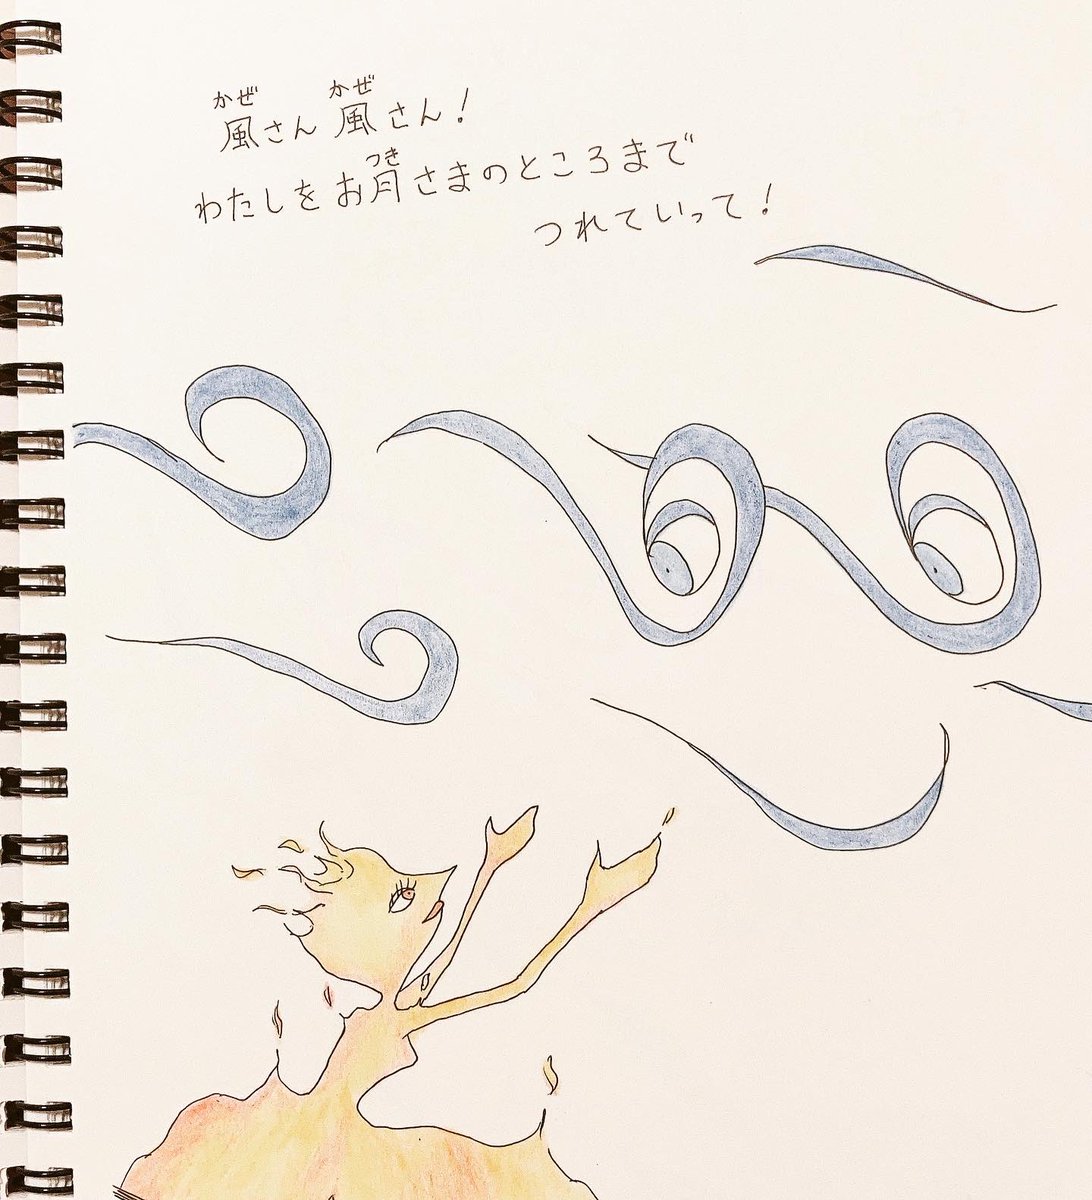 風さん 風さん!
わたしをお月さまのところまで
つれていって!